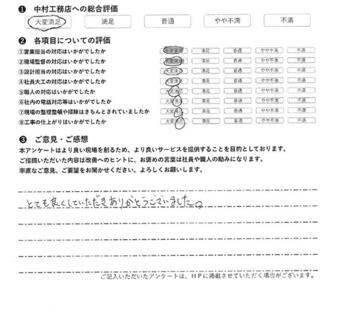 ❶ 中村工務店への総合評価
大変満足 満足 普通 やや不満 不満
❷ 各項目についての評価
①営業担当の対応はいかがでしたか 大変満足 満足 普通 やや不満 不満
②現場監督の対応はいかがでしたか 大変満足 満足 普通 やや不満 不満
③設計担当の対応はいかがでしたか 大変満足 満足 普通 やや不満 不満
④社員大工の対応はいかがでしたか 大変満足 満足 普通 やや不満 不満
⑤職人の対応はいかがでしたか 大変満足 満足 普通 やや不満 不満
⑥社内の電話対応等はいかがでしたか 大変満足 満足 普通 やや不満 不満
⑦現場の整理整頓や掃除はきちんとされていましたか 大変満足 満足 普通 やや不満 不満
⑧工事の仕上がりはいかがでしたか 大変満足 満足 普通 やや不満 不満
❸ ご意見・ご感想
本アンケートはより良い現場を創るため、より良いサービスを提供することを目的としております。
ご指摘いただいた内容は改善へのヒントに、お褒めの言葉は社員や職人の励みになります。
率直なご意見、ご要望をお聞かせください。よろしくお願いします。
とても良くしていただきありがとうございました。
ご記入いただいたアンケートは、HPに掲載させていただく場合がございます。